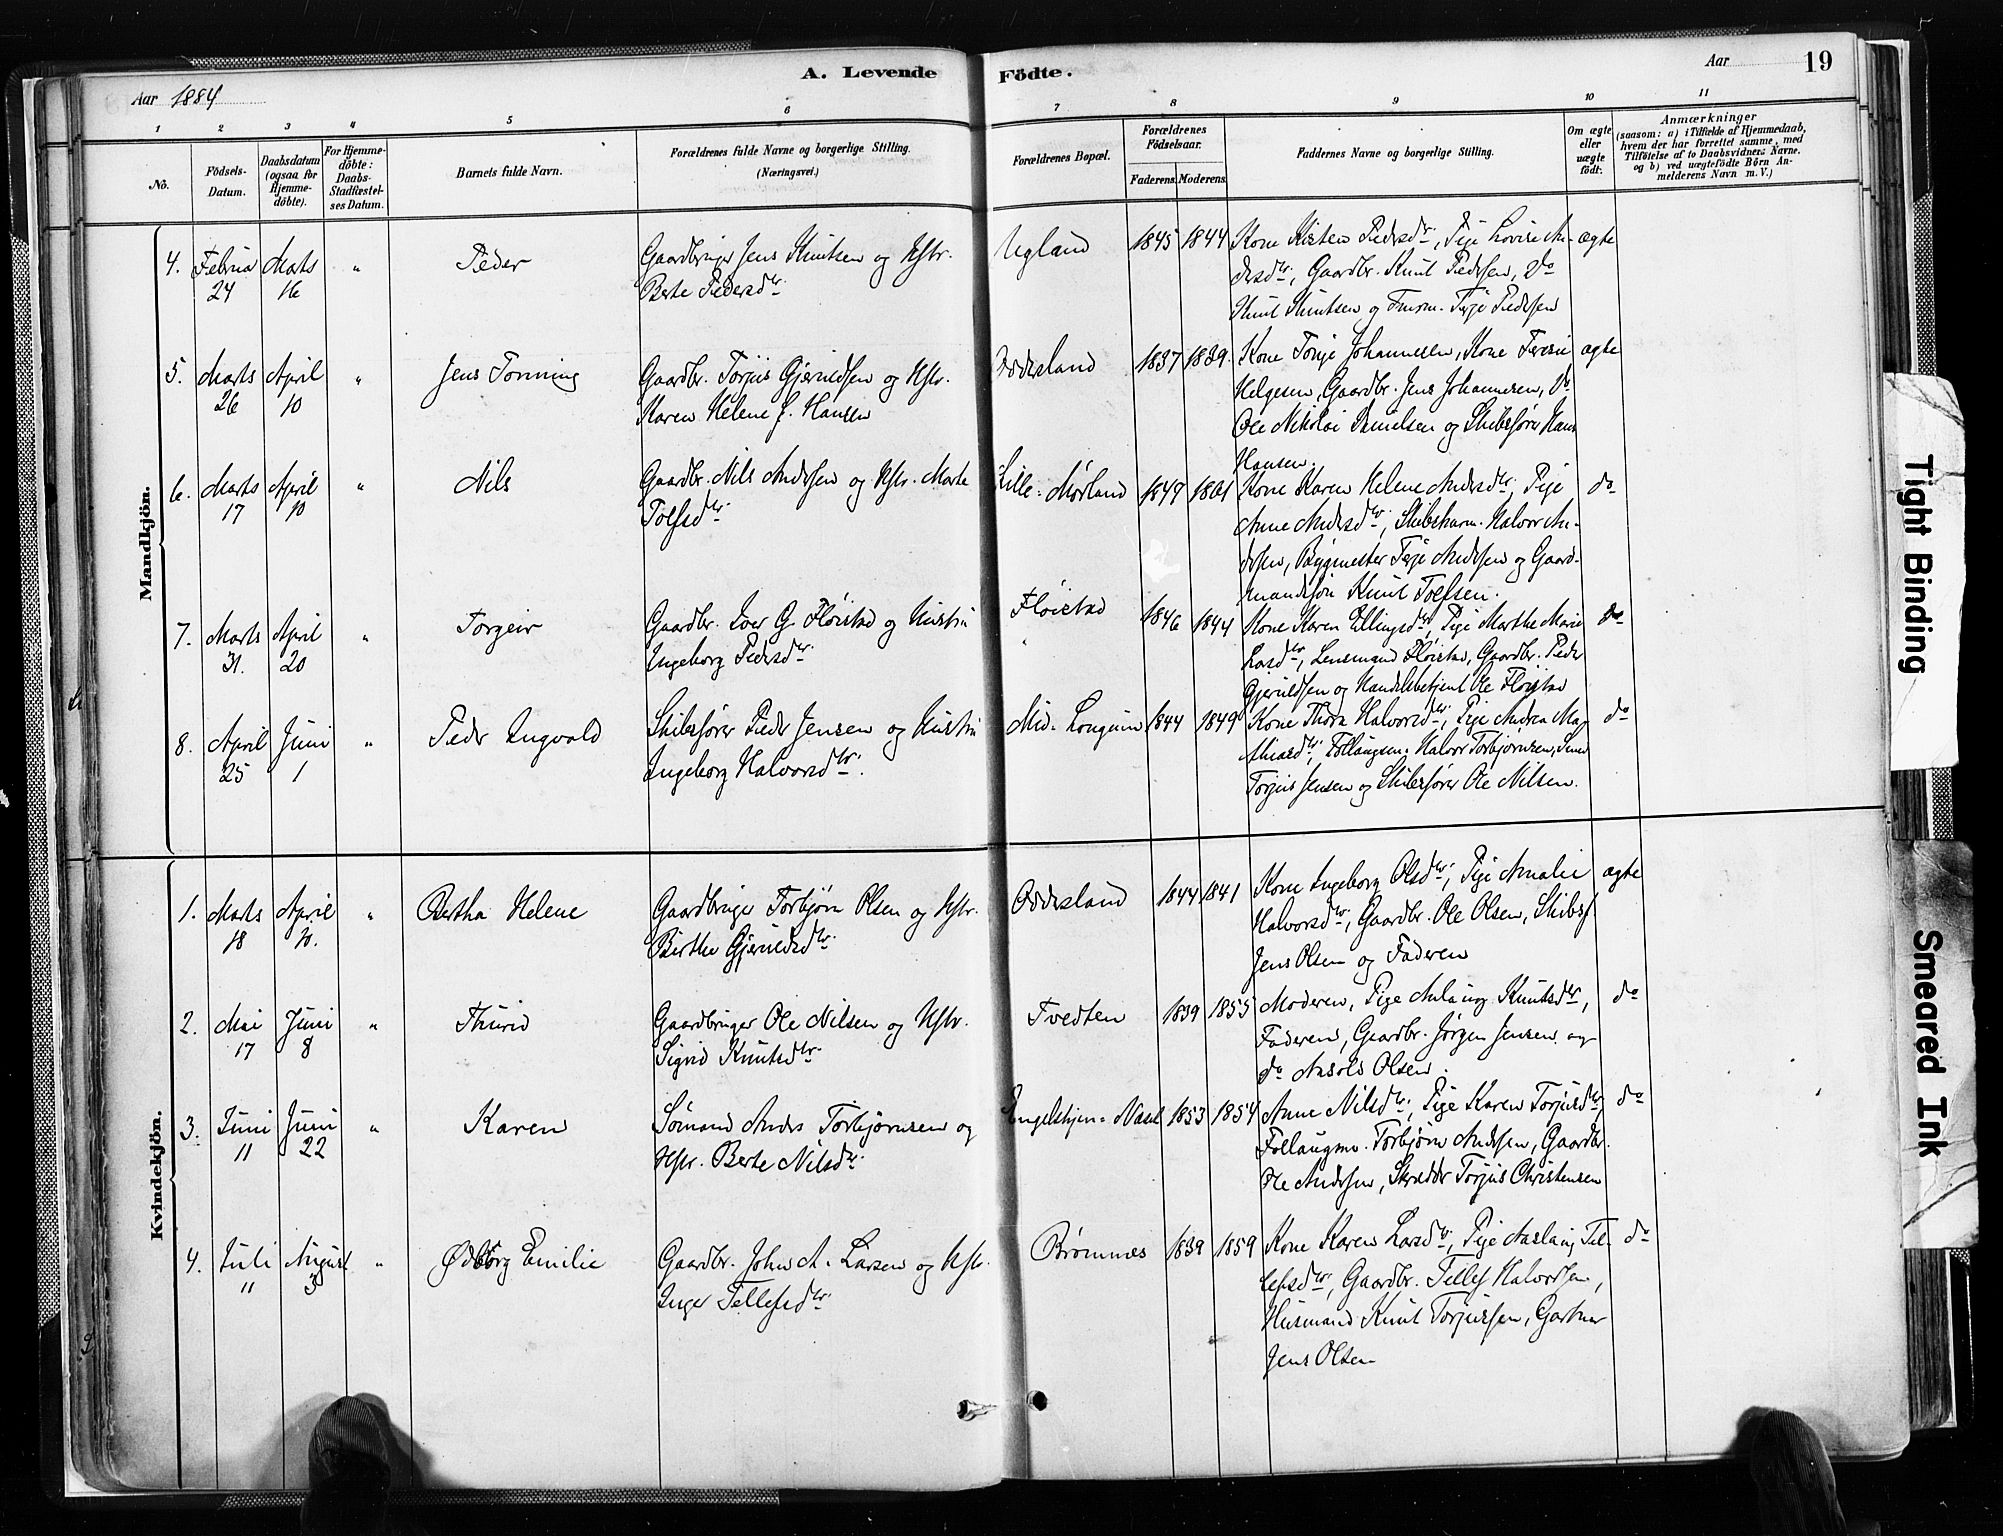 A. Levende Födte.
Aar 1884
Aar 19
1 2 3 4 5 6 7 8 9 10 11
No.
Födsels-Datum.
Daabsdatum (ogsaa for Hjemme-döbte).
For Hjemme-döbte: Daabs-Stadfæstel-ses Datum.
Barnets fulde Navn.
Forældrenes fulde Navne og borgerlige Stilling. (Næringsvei.)
Forældrenes Bopæl.
Forældrenes Födselsaar.
Faderens. Moderens.
Faddernes Navne og borgerlige Stilling.
Om ægte eller uægte født.
Anmærkninger
(saasom: a) i Tilfælde af Hjemmedaab,
hvem der har forrettet samme, med
Tilföielse af to Daabsvidners Navne.
og b) ved uægtefödte Börn An-
melderens Navn m. V.)
Mandkjön.
4. Februar 24 Marts 16 " Peder
Gaardbruger Jens Knutsen og Hstr.
Berte Pedersdtr.
Ugland 1845 1844
Kone Kirsten Pedersdtr, Pige Lovise An-
dersdtr, Gaardbr. Knut Pedersen, do
Knut Knutsen og Terje Pedersen
ægte
5. Marts 26 April 10 " Jens Tonning
Gaardbr. Torjus Gjeruldsen og Hstr.
Karen Helene f. Hansen
Oddersland 1837 1839.
Kone Tonje Johannessen, Kone
Helgesen, Gaardbr. Jens Johannesen, do
Ole Nikolai Danielsen og Skibsfører Hans
Hansen.
ægte
6. Marts 17 April 10 " Nils
Gaardbr. Nils Andersen og Hstr. Marte
Tolfsdtr.
Lille-Mørland 1849 1861
Kone Karen Helene Andersdtr, Pige
Anne Andersdtr, Halvor An-
dersen, Bygmester Terje Andersen og Gaard-
mandssøn Knut Tolfsen.
do
7. Marts 31. April 20 " Torgeir
Gaardbr. Iver G. Fløistad og Hustru
Ingeborg Pedersdtr.
Fløistad 1846 1844
Kone Karen Ellingsdtr, Pige Marthe Marie
Larsdtr, Lensmand Fløistad, Gaardbr. Peder
Gjeruldsen og Handelsbetjent Ole Fløistad
do
8. April 25 Juni 1 " Peder Ingvald
Skibsfører Peder Jensen og Hustru
Ingeborg Halvorsdtr.
Mid-Longum 1844 1849
Kone Thora Halvorsdtr, Pige Andrea Ma-
thiasdtr, Halvor Torbjørnsen,
Torjus Jensen og Skibsfører Ole Nilsen.
do
Kvindekjön.
1. Marts 18 April 10. " Bertha Helene
Gaardbruger Torbjørn Olsen og Hstr.
Berthe Gjeruldsdtr.
Oddersland 1844 1841
Kone Ingeborg Olsdtr, Pige Amalie
Halvorsdtr, Gaardbr. Ole Olsen, Skibsf.
Jens Olsen og Faderen
ægte
2. Mai 17 Juni 8 " Thurid
Gaardbruger Ole Nilsen og Hstr.
Sigrid Knutsdtr.
Tvedten 1839 1855
Moderen, Pige Aslaug Knutsdtr,
Faderen, Gaardbr. Jørgen Jensen og
do Olsen.
do
3. Juni 11 Juni 22 " Karen
Sømand Anders Torbjørnsen og
Hstr. Berte Nilsdtr.
1853 1854
Anne Nilsdtr, Pige Karen Torjusdtr,
Torbjørn Andersen, Gaardbr.
Ole Andersen, Skrædder Torjus Christensen
do
4. Juli 11 August 3 " Ødborg Emilie
Gaardbr. John A. Larsen og Hstr.
Inger Tellefsdtr.
Brømnes 1839 1859
Kone Karen Larsdtr, Pige Aslaug Tel-
lefsdtr, Gaardbr. Tellef Halvorsen,
Husmand Knut Torjussen, Gartner
Jens Olsen
do
Tight Binding
Smeared Ink